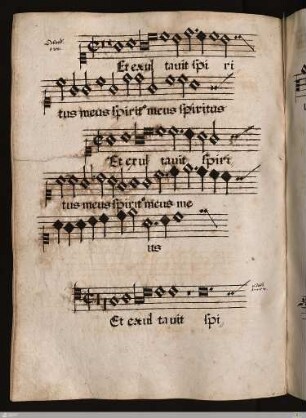 Et exul tavit spi ri
tus meus spirit⁹ meus spiritus
Et exul tavit spiri
tus meus spirit meus me
us
Et exul tavit spi